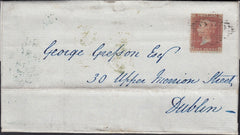 George Grogson Esq
30 Upper Merrion Street,
Dublin